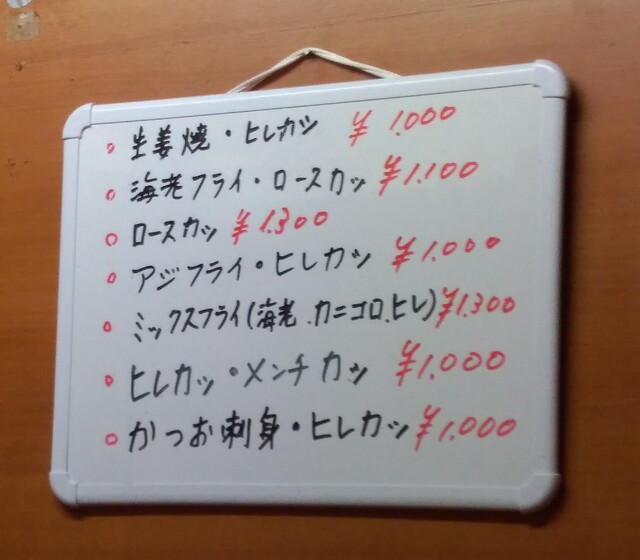 ○ 生姜焼・ヒレカツ ¥1.000
○ 海老フライ・ロースカツ ¥1.100
○ ロースカツ ¥1.300
○ アジフライ・ヒレカツ ¥1.000
○ ミックスフライ(海老.カニコロ.ヒレ)¥1.300
○ ヒレカツ・メンチカツ ¥1.000
○ かつお刺身・ヒレカツ ¥1.000